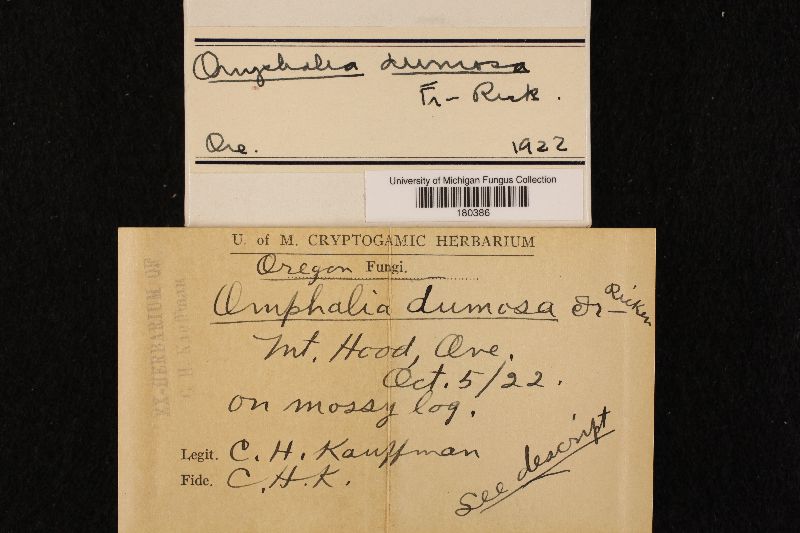 Omphalia dumosa
Fr- Rick.
Ore. 1922
University of Michigan Fungus Collection
180386
U. of M. CRYPTOGAMIC HERBARIUM
Oregon Fungi.
Omphalia dumosa Fr- Ricken
Mt. Hood, Ore.
Oct. 5/22.
on mossy log.
Legit. C. H. Kauffman
Fide. C.H.K.
See descript
EX-HERBARIUM OF
C H KAUFFMAN